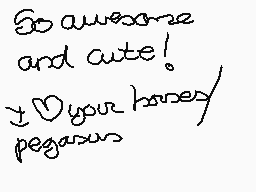 So awesome
and cute!
I ♡ your horses/
pegasus